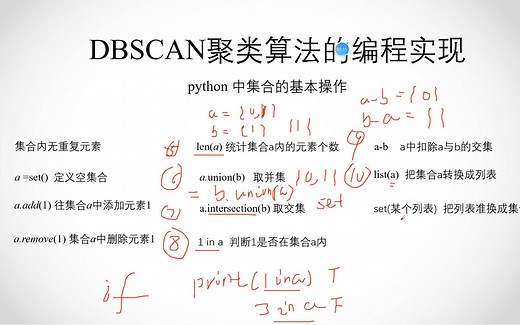 DBSCAN聚类算法的编程实现
python 中集合的基本操作
a = {0,1}
b = {1} {1}
a-b = {0}
b-a = { }
集合内无重复元素
len(a) 统计集合a内的元素个数
a-b a中扣除a与b的交集
a =set() 定义空集合
⑥ a.union(b) 取并集 {0,1}
⑩ list(a) 把集合a转换成列表
= b.union(a)
a.add(1) 往集合a中添加元素1
⑦ a.intersection(b) 取交集 set
set(某个列表) 把列表准换成集
a.remove(1) 集合a中删除元素1
⑧ 1 in a 判断1是否在集合a内
if print(1 in a) T
3 in a F